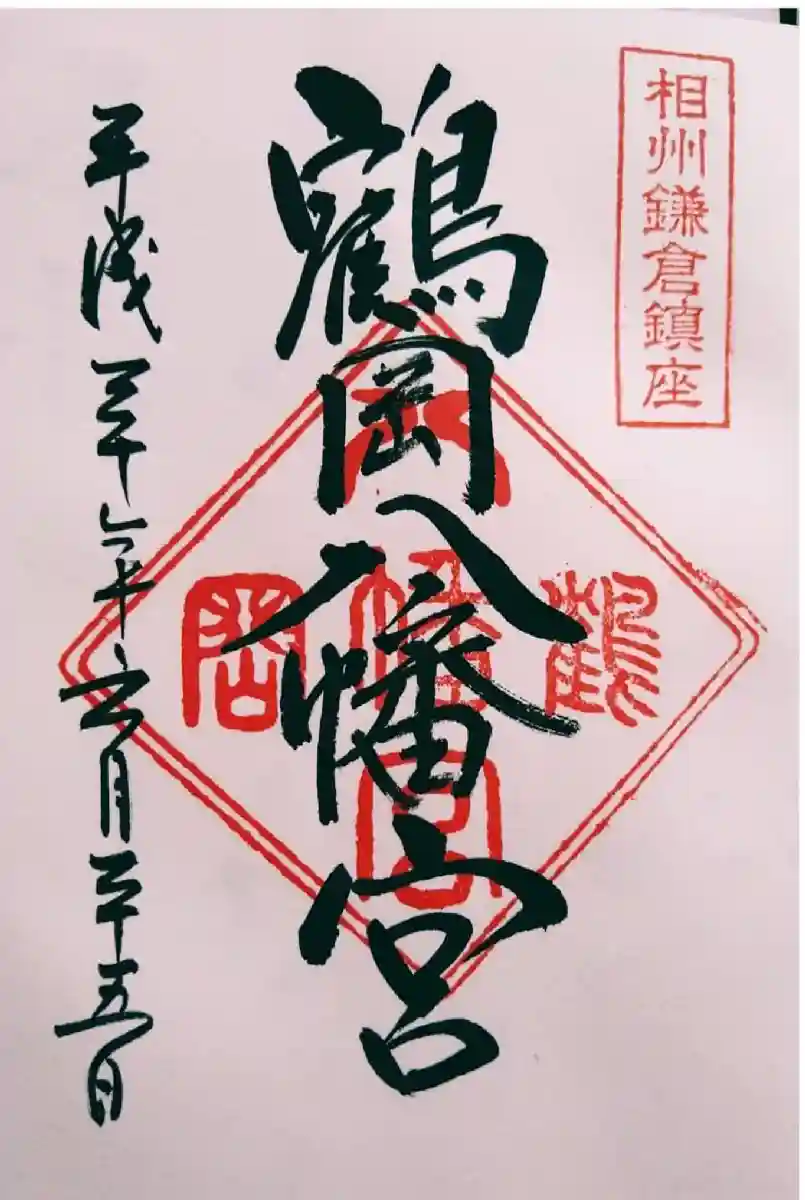 相州鎌倉鎮座
鶴岡八幡宮
鶴岡八幡宮
平成三十年六月二十五日